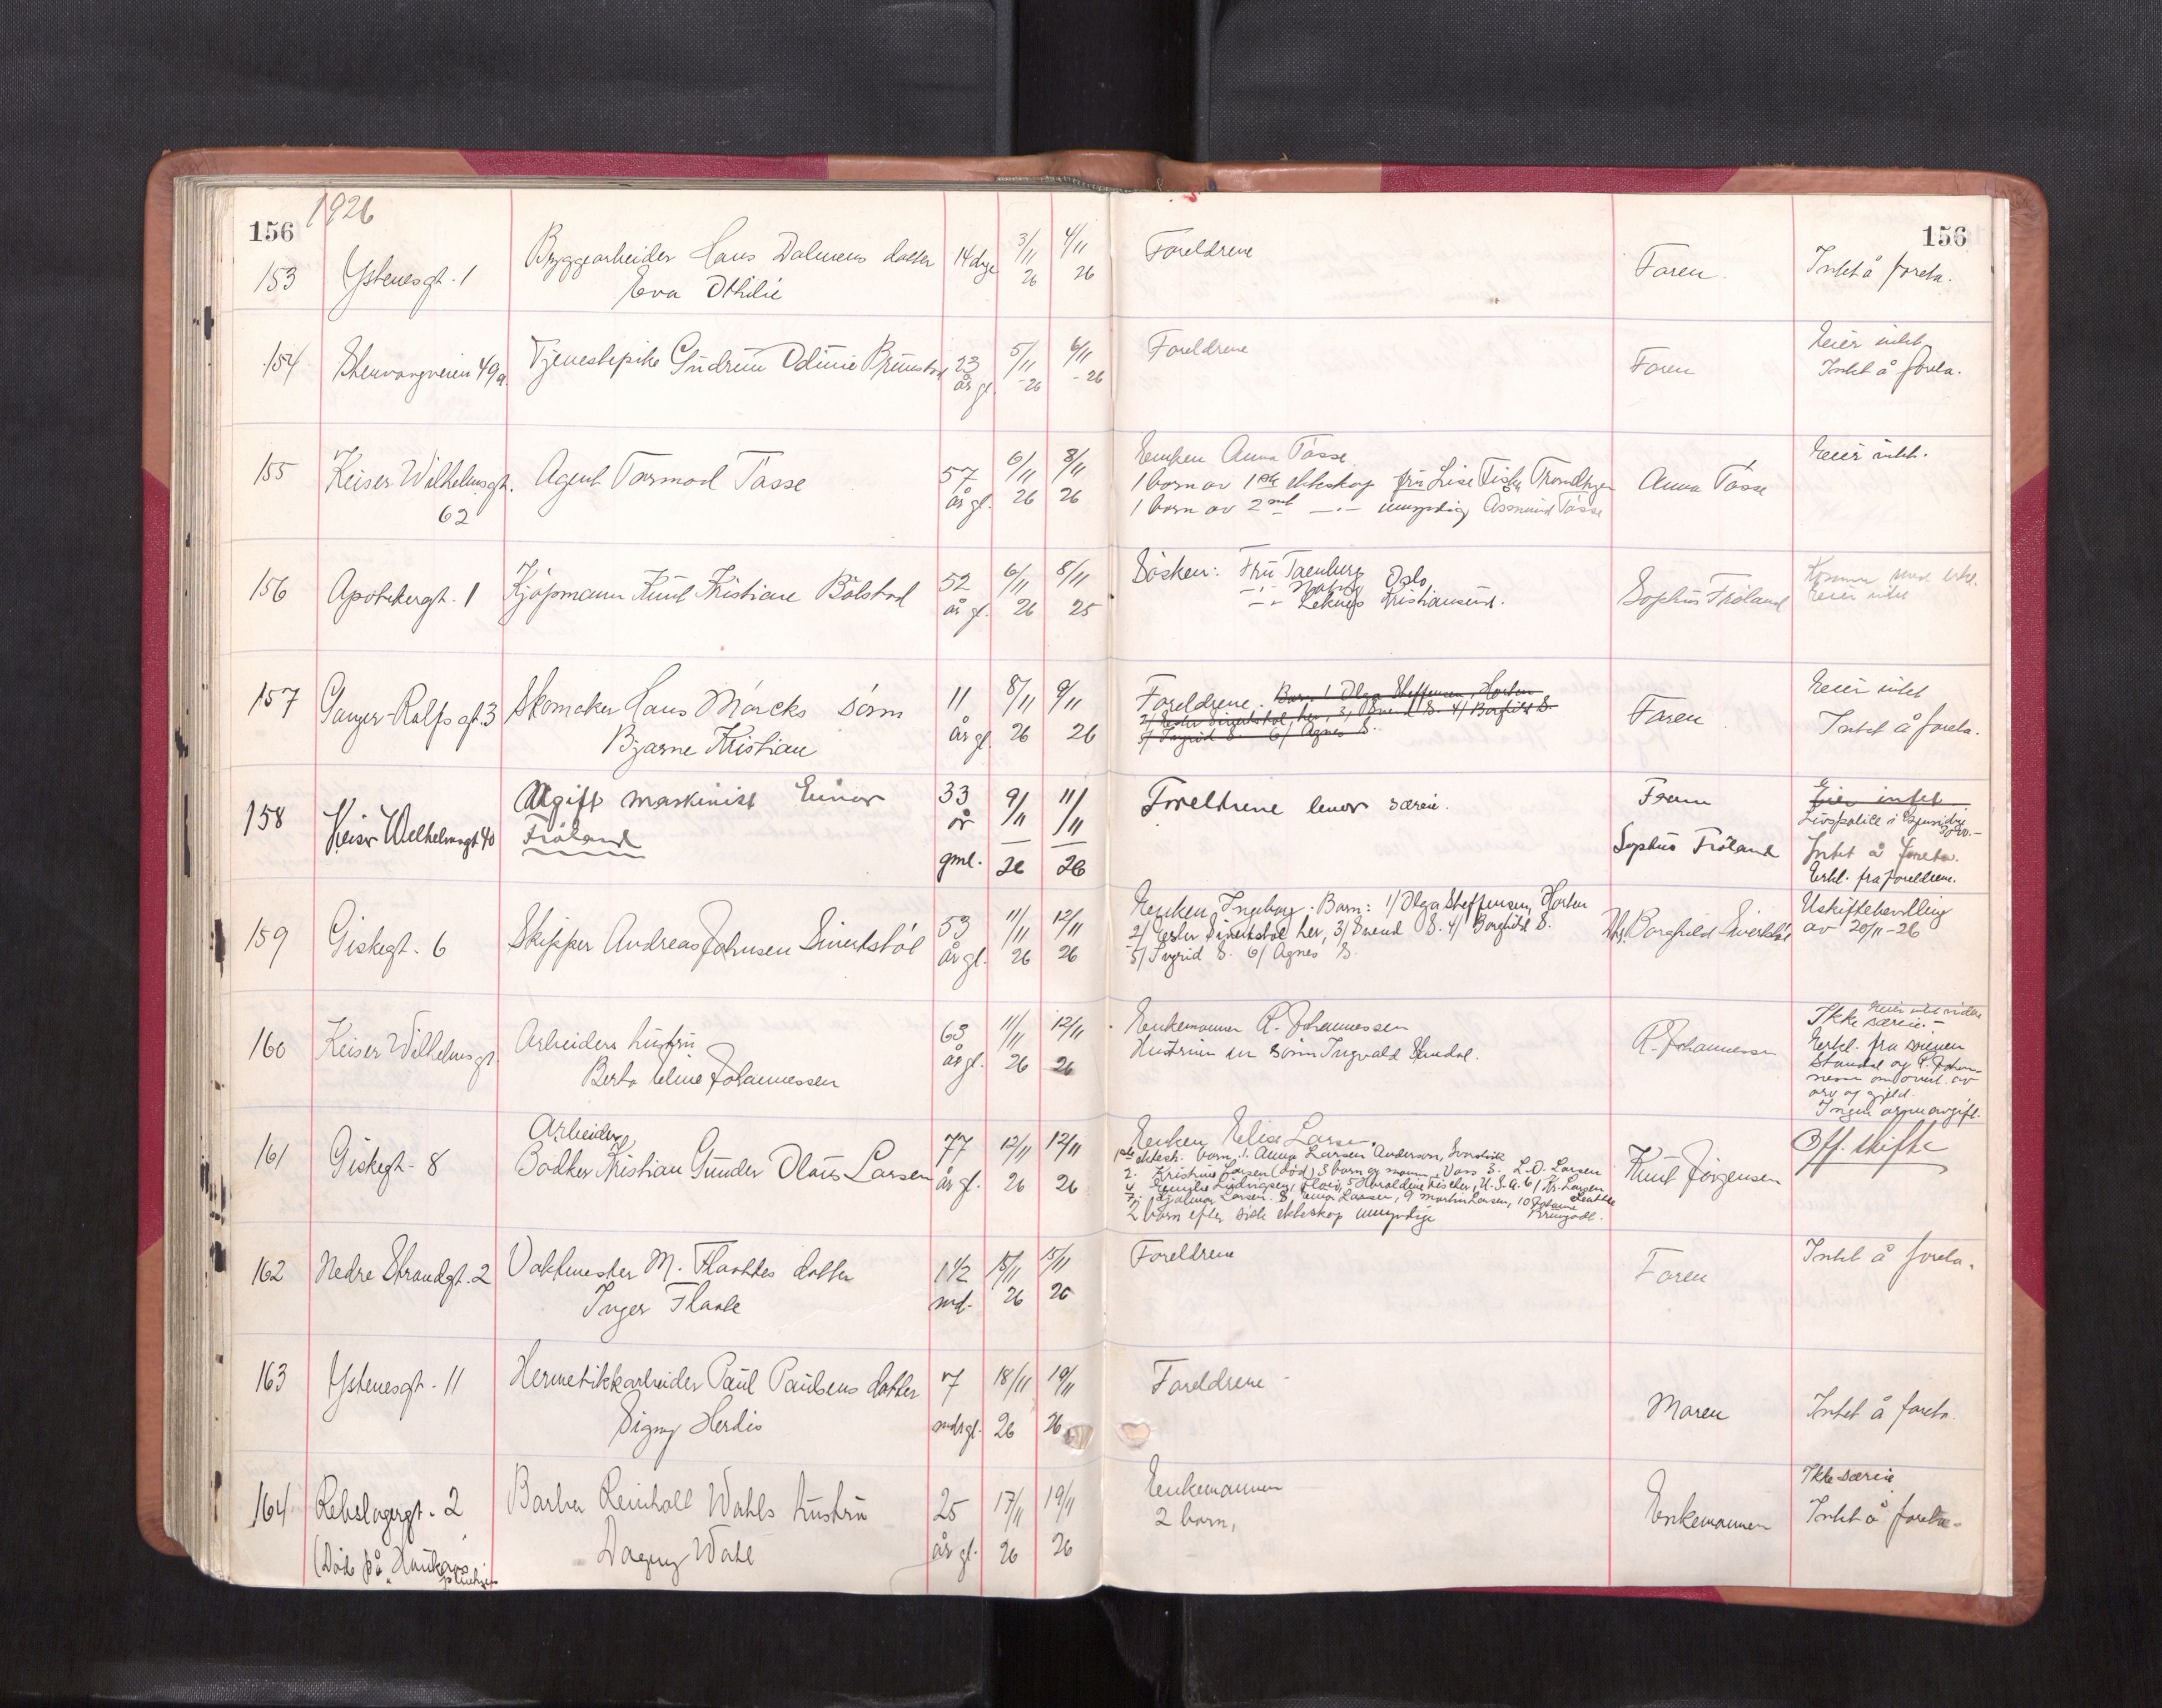 1926
156
156
153 Ystenesgt. 1 Byggearbeider Hans Dalmens datter 14 dge 3/11 4/11 Foreldrene Faren Intet å foreta.
Eva Othilie 26 26
154 Stenvangveien 49a Tjenestepike Gudrun Odinie Brunstad 23 5/11 6/11 Foreldrene Faren Eier intet
år gl. -26 -26 Intet å foreta.
155 Keiser Wilhelmsgt. Agent Tormod Tasse 57 6/11 8/11 Enken Anna Tasse Anna Tasse Eier intet.
62 år gl. 26 26 1 barn av 1ste ekteskap fru Lise Trondhjem
1 barn av 2net —.— umyndig Asmund Tasse
156 Apotekergt. 1 Kjøpmann Knut Kristian Bolstad 52 6/11 8/11 Søsken: Fru Oslo, Sophus Frøland
år gl. 26 25 —.— Kristiansund. Eier intet
157 Ganger-Rolfs gt. 3 Skomaker Hans Mørcks sønn 11 8/11 9/11 Foreldrene. Barn 1 Olga Steffensen, Horten Faren Eier intet
Bjarne Kristian år gl. 26 26 2/ Sivertstøl, her, 3/ Svend S. 4/ Borghild S. Intet å foreta.
5/ Ingrid S. 6/ Agnes S.
158 Keiser Wilhelmsgt 40 Ugift maskinist Einar 33 9/11 11/11 Foreldrene lever særeie. Faren Eier intet
Frøland år Livspolice i
gml. 26 26 Sophus Frøland Intet å foreta.
Erkl. fra foreldrene.
159 Giskegt. 6 Skipper Andreas Johnsen Sivertstøl 53 11/11 12/11 Enken Ingeborg. Barn: 1/ Olga Steffensen, Horten Borghild Sivertstøl Uskiftebevilling
år gl. 26 26 2/ Sivertstøl her, 3/ Svend S. 4/ Borghild S. av 20/11-26
5/ Ingrid S. 6/ Agnes S.
160 Keiser Wilhelmsgt. Arbeiders hustru 63 11/11 12/11 Enkemannen R. Johannessen R. Johannessen Eier intet videre
Ikke særeie.
Berta Eline Johannessen år gl. 26 26 Hustruen en sønn Ingvald Standal. Erkl. fra sønnen
Standal og R. Johannessen om overt. av
arv og gjeld.
Ingen arveavgift.
161 Giskegt. 8 Arbeider, 77 12/11 12/11 Enken Elise Larsen. Knut Jørgensen Off. skifte
Bødker Kristian Gunder Olaus Larsen år gl. 26 26 1ste ektesk. barn, 1. Anna Larsen Anderson,
2. Kristine Larsen (død) 3 barn og mann, Voss 3. L. O. Larsen
4. Ludvigsen, Florø, 5 U.S.A. 6/ Kr. Larsen Seattle
7. Hjalmar Larsen. 8, Einar Larsen, 9 Martin Larsen, 10 Johanne
2 barn efter siste ekteskap umyndige
162 Nedre Strandgt. 2 Vaktmester M. Flaottes datter 1 1/2 15/11 15/11 Foreldrene Faren Intet å foreta.
Inger md. 26 26
163 Ystenesgt. 11 Hermetikkarbeider Paul Paulsens datter 7 18/11 19/11 Foreldrene Moren Intet å foreta.
Signy Herdis mdr gl. 26 26
164 Rebslagergt. 2 Barber Reinholt Wahls hustru 25 17/11 19/11 Enkemannen Enkemannen Ikke særeie
(Død på Haukeras Dagny Wahl år gl. 26 26 2 barn, Intet å foreta.